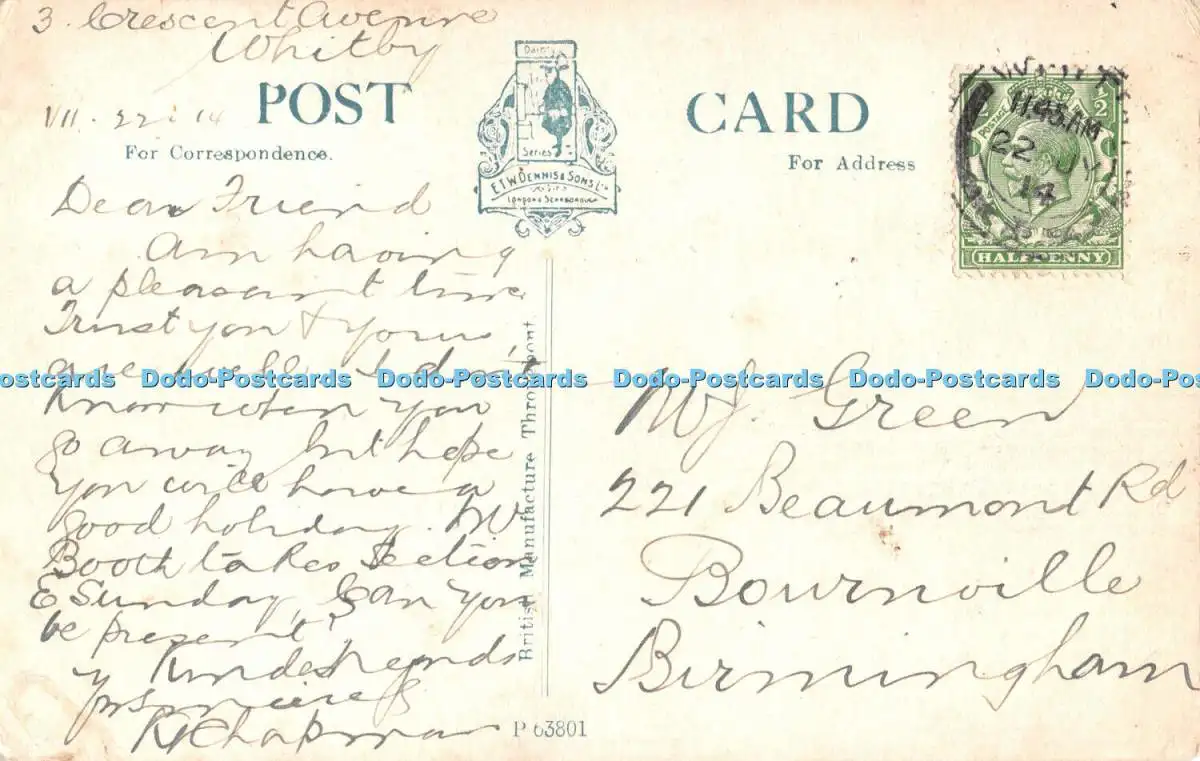 3 Crescent Avenue
Whitby
VII. 22. 14
POST CARD
For Correspondence.
For Address
Dainty
Series
E.T.W. DENNIS & SONS Ltd
LONDON & SCARBOROUGH
HALFPENNY
11.45 AM
22
14
Dear Friend
Am having
a pleasant time
Trust you & yours
are well. I don't
know when you
go away but hope
you will have a
good holiday. Mr
Booth takes Section
E Sunday, Can you
be present?
Kindest regards
yrs sincerely
Chapman
British Manufacture Throughout
P 63801
Mr J. Green
221 Beaumont Rd
Bournville
Birmingham
Dodo-Postcards Dodo-Postcards Dodo-Postcards Dodo-Postcards Dodo-Postcards